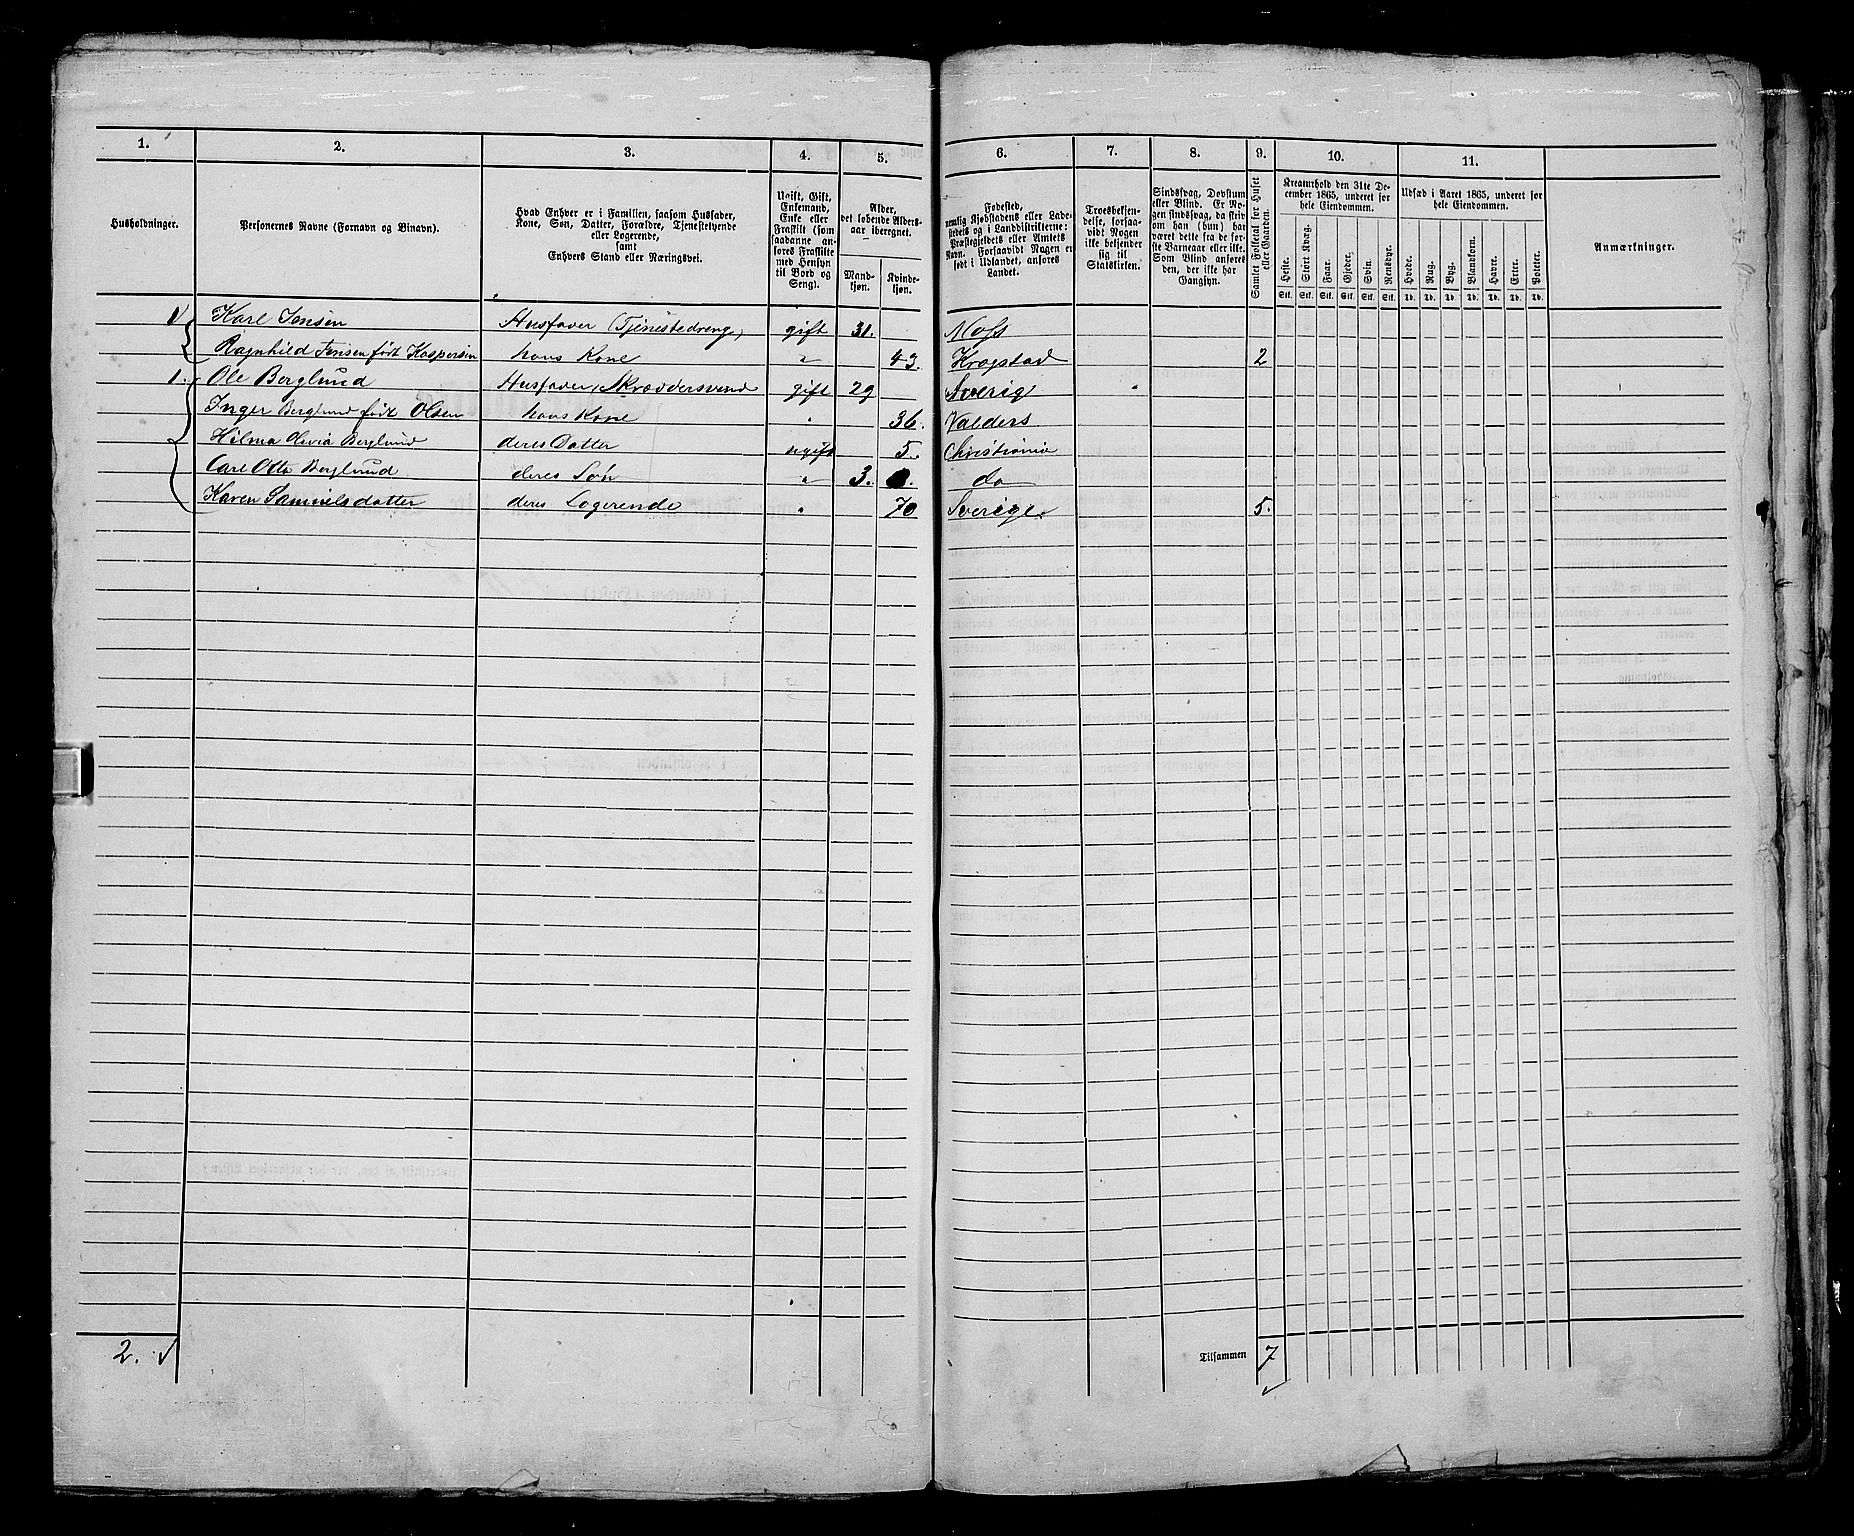 1. 2. 3. 4. 5. 6. 7. 8. 9. 10. 11.
Husholdninger.
Personernes Navne (Fornavn og Binavn).
Hvad Enhver er i Familien, saasom Husfader,
Kone, Søn, Datter, Forældre, Tjenestetyende
eller Logerende,
samt
Enhvers Stand eller Næringsvei.
Ugift, Gift,
Enkemand,
Enke eller
Fraskilt (som
saadanne an-
føres Fraskilte
med Hensyn
til Bord og
Seng).
Alder,
det løbende Alders-
aar iberegnet.
Mand-
kjøn.
Kvinde-
kjøn.
Fødested,
nemlig Kjøbstadens eller Lade-
stedets og i Landdistrikterne:
Præstegjeldets eller Amtets
Navn. Forsaavidt Nogen er
født i Udlandet, anføres
Landet.
Troesbekjen-
delse, forsaa-
vidt Nogen
ikke bekjender
sig til
Statskirken.
Sindssvag, Døvstum
eller Blind. Er No-
gen sindssvag, da skriv
om han (hun) har
været dette fra de før-
ste Barneaar eller ikke.
Som Blind anføres
den, der ikke har
Gangsyn.
Samlet Folketal for Huset
eller Gaarden.
Kreaturhold den 31te De-
cember 1865, underet for
hele Eiendommen.
Heste. Stort Kvæg. Faar. Gjeder. Svin. Rensdyr.
Stk. Stk. Stk. Stk. Stk. Stk.
Udsæd i Aaret 1865, underet for
hele Eiendommen.
Hvede. Rug. Byg. Blandkorn. Havre. Erter. Poteter.
Td. Td. Td. Td. Td. Td. Td.
Anmærkninger.
1 Karl Jensen Husfader (Tjenestedreng) gift 31. Moss
Ragnhild Jensen født Kaspersen hans Kone " 43. Krogstad 2
1. Ole Berglund Husfader, Skræddersvend gift 29 Sverig
Inger Berglund født Olsen hans Kone " 36. Valders
Hilma Olevia Berglund deres Datter ugift 5. Christiania
Carl Otto Berglund deres Søn " 3. do
Karen Samuelsdatter deres Logerende " 70 Sverige. 5.
2. Tilsammen 7